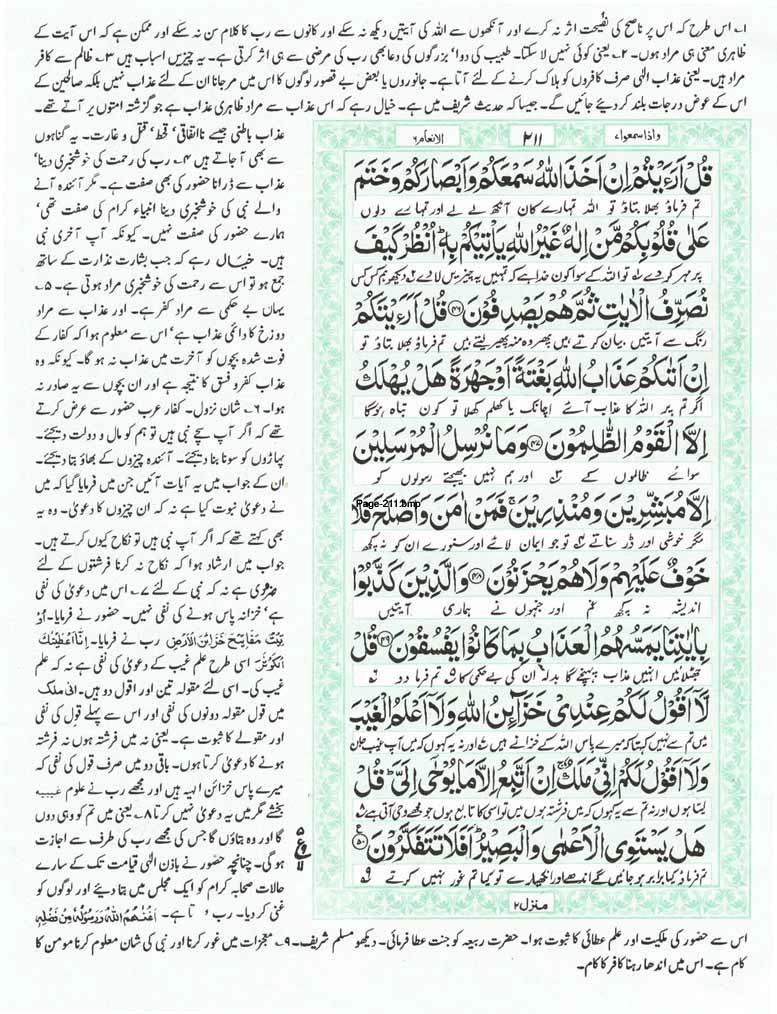 ۱۔ اس طرح کہ اس پر ناصح کی نصیحت اثر نہ کرے اور آنکھوں سے اللہ کی آیتیں دیکھ نہ سکے اور کانوں سے رب کا کلام سن نہ سکے اور ممکن ہے کہ اس آیت کے
ظاہری معنی ہی مراد ہوں۔ ۲۔ یعنی کوئی نہیں لا سکتا۔ طبیب کی دوا' بزرگوں کی دعا بھی رب کی مرضی سے ہی اثر کرتی ہے۔ یہ چیزیں اسباب ہیں ۳۔ ظالم سے کافر
مراد ہیں۔ یعنی عذاب الٰہی صرف کافروں کو ہلاک کرنے کے لئے آتا ہے۔ جانوروں یا بعض بے قصور لوگوں کا اس میں مر جانا ان کے لئے عذاب نہیں بلکہ صالحین کے
اس کے عوض درجات بلند کر دیئے جائیں گے۔ جیسا کہ حدیث شریف میں ہے۔ خیال رہے کہ اس عذاب سے مراد ظاہری عذاب ہے جو گزشتہ امتوں پر آتے تھے۔
واذا سمعوا ۷
۲۱۱
الانعام ۶
قُلْ اَرَءَيْتُمْ اِنْ اَخَذَ اللّٰهُ سَمْعَكُمْ وَاَبْصَارَكُمْ وَخَتَمَ
تم فرماؤ بھلا بتاؤ تو اللہ تمہارے کان آنکھ لے لے اور تمہارے دلوں
عَلٰى قُلُوْبِكُمْ مَّنْ اِلٰهٌ غَيْرُ اللّٰهِ يَاْتِيْكُمْ بِهٖ ؕ اُنْظُرْ كَيْفَ
پر مہر کر دے تو اللہ کے سوا کون خدا ہے کہ تمہیں یہ چیزیں لا دے ۲ دیکھو ہم کس کس
نُصَرِّفُ الْاٰيٰتِ ثُمَّ هُمْ يَصْدِفُوْنَ ﴿۴۶﴾ قُلْ اَرَءَيْتَكُمْ
رنگ سے آیتیں بیان کرتے ہیں پھر وہ منہ پھیر لیتے ہیں تم فرماؤ بھلا بتاؤ تو
اِنْ اَتٰىكُمْ عَذَابُ اللّٰهِ بَغْتَةً اَوْ جَهْرَةً هَلْ يُهْلَكُ
اگر تم پر اللہ کا عذاب آئے اچانک یا کھلم کھلا تو کون تباہ ہوگا
اِلَّا الْقَوْمُ الظّٰلِمُوْنَ ﴿۴۷﴾ وَمَا نُرْسِلُ الْمُرْسَلِيْنَ
سوائے ظالموں کے ۳ اور ہم نہیں بھیجتے رسولوں کو
اِلَّا مُبَشِّرِيْنَ وَمُنْذِرِيْنَ ۚ فَمَنْ اٰمَنَ وَاَصْلَحَ فَلَا
Page-211.bmp
مگر خوشی اور ڈر سناتے ۴ تو جو ایمان لائے اور سنورے ان کو نہ کچھ
خَوْفٌ عَلَيْهِمْ وَلَا هُمْ يَحْزَنُوْنَ ﴿۴۸﴾ وَالَّذِيْنَ كَذَّبُوْا
اندیشہ نہ کچھ غم اور جنہوں نے ہماری آیتیں
بِاٰيٰتِنَا يَمَسُّهُمُ الْعَذَابُ بِمَا كَانُوْا يَفْسُقُوْنَ ﴿۴۹﴾ قُلْ
جھٹلائیں انہیں عذاب پہنچے گا بدلہ ان کی بے حکمی کا ۵ تم فرما دو
لَّاۤ اَقُوْلُ لَكُمْ عِنْدِىْ خَزَآىِٕنُ اللّٰهِ وَلَاۤ اَعْلَمُ الْغَيْبَ
میں تم سے نہیں کہتا کہ میرے پاس اللہ کے خزانے ہیں اور نہ یہ کہوں کہ میں آپ غیب جان
وَلَاۤ اَقُوْلُ لَكُمْ اِنِّىْ مَلَكٌ ۚ اِنْ اَتَّبِعُ اِلَّا مَا يُوْحٰۤى اِلَىَّ ؕ قُلْ
لیتا ہوں اور نہ تم سے یہ کہوں کہ میں فرشتہ ہوں میں تو اسی کا تابع ہوں جو مجھے وحی آتی ہے
هَلْ يَسْتَوِى الْاَعْمٰى وَالْبَصِيْرُ ؕ اَفَلَا تَتَفَكَّرُوْنَ ﴿۵۰﴾
تم فرماؤ کیا برابر ہو جائیں گے اندھے اور انکھیارے تو کیا تم غور نہیں کرتے ۹
منزل ۲
عذاب باطنی جیسے نااتفاقی' قحط' قتل و غارت۔ یہ گناہوں
سے بھی آ جاتے ہیں ۴۔ رب کی رحمت کی خوشخبری دینا'
عذاب سے ڈرانا حضور کی بھی صفت ہے۔ مگر آئندہ آنے
والے نبی کی خوشخبری دینا انبیاء کرام کی صفت تھی'
ہمارے حضور کی صفت نہیں۔ کیونکہ آپ آخری نبی
ہیں۔ خیال رہے کہ جب بشارت نذارت کے ساتھ
جمع ہو تو اس سے رحمت کی خوشخبری مراد ہوتی ہے۔ ۵۔
یہاں بے حکمی سے مراد کفر ہے۔ اور عذاب سے مراد
دوزخ کا دائمی عذاب ہے' اس سے معلوم ہوا کہ کفار کے
فوت شدہ بچوں کو آخرت میں عذاب نہ ہو گا۔ کیونکہ وہ
عذاب کفر و فسق کا نتیجہ ہے اور ان بچوں سے یہ صادر نہ
ہوا۔ ۶۔ شان نزول۔ کفار عرب حضور سے عرض کرتے
تھے کہ اگر آپ سچے نبی ہیں تو ہم کو مال و دولت دیجئے۔
پہاڑوں کو سونا بنا دیجئے۔ آئندہ چیزوں کے بھاؤ بتا دیجئے۔
ان کے جواب میں یہ آیات آئیں جن میں فرمایا گیا کہ میں
نے دعویٰ نبوت کیا ہے نہ کہ ان چیزوں کا دعویٰ۔ وہ یہ
بھی کہتے تھے کہ اگر آپ نبی ہیں تو نکاح کیوں کرتے ہیں۔
جواب میں ارشاد ہوا کہ نکاح نہ کرنا فرشتوں کے لئے
ضروری ہے نہ کہ نبی کے لئے ۷۔ اس میں دعویٰ کی نفی
ہے' خزانہ پاس ہونے کی نفی نہیں۔ حضور نے فرمایا۔ اُوْ
تِيْتُ مَفَاتِيْحَ خَزَائِنِ الْاَرْضِ رب نے فرمایا۔ اِنَّا اَعْطَيْنٰكَ
الْكَوْثَرَ اسی طرح علم غیب کے دعویٰ کی نفی ہے نہ کہ علم
غیب کی۔ اسی لئے مقولہ تین اور اقول دو ہیں۔ انی ملک
میں قول مقولہ دونوں کی نفی اور اس سے پہلے قول کی نفی
اور مقولے کا ثبوت ہے۔ یعنی نہ میں فرشتہ ہوں نہ فرشتہ
ہونے کا دعویٰ کرتا ہوں۔ باقی دو میں صرف قول کی نفی کہ
میرے پاس خزائن الہیہ ہیں اور مجھے رب نے علوم غیبیہ
بخشے مگر میں یہ دعویٰ نہیں کرتا ۸۔ یعنی میں تم کو وہی دوں
گا اور وہ بتاؤں گا جس کی مجھے رب کی طرف سے اجازت
ہوگی۔ چنانچہ حضور نے باذن الٰہی قیامت تک کے سارے
حالات صحابہ کرام کو ایک مجلس میں بتا دیئے اور لوگوں کو
غنی کر دیا۔ رب تا ہے۔ اَغْنٰهُمُ اللّٰهُ وَرَسُوْلُهٗ مِنْ فَضْلِهٖ
اس سے حضور کی ملکیت اور علم عطائی کا ثبوت ہوا۔ حضرت ربیعہ کو جنت عطا فرمائی۔ دیکھو مسلم شریف۔ ۹۔ معجزات میں غور کرنا اور نبی کی شان معلوم کرنا مومن کا
کام ہے۔ اس میں اندھا رہنا کافر کا کام۔